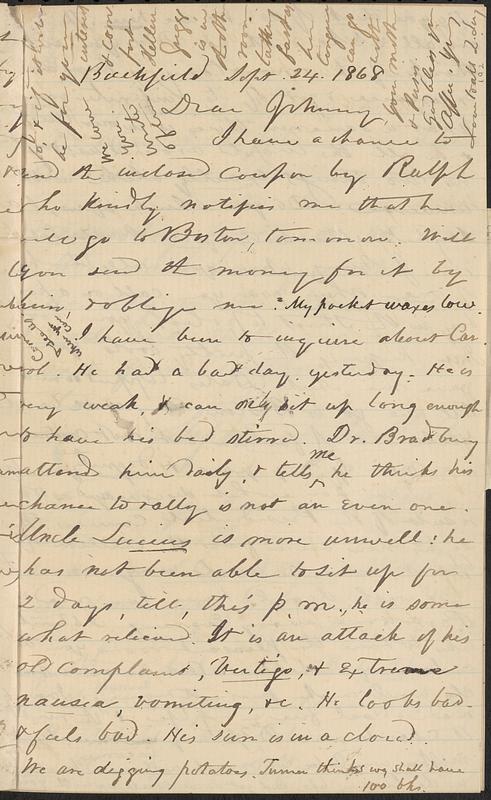 Buckfield Sept. 24. 1868
Dear Johnny,
I have a chance to
send the inclosed coupon by Ralph
who kindly notifies me that he
will go to Boston, tomorrow. Will
you send the money for it by
him, & oblige me. My pocket waxes low.
I have been to inquire about Car-
rol. He had a bad day yesterday. He is
very weak, & can only sit up long enough
to have his bed stirred. Dr. Bradbury
attend him daily, & tells me he thinks his
chance to rally is not an even one.
Uncle Lucius is more unwell: he
has not been able to sit up for
2 days, till, this p. m., he is some
what relieved. It is an attack of his
old complaint, Vertigo, & extreme
nausea, vomiting, &c. He looks bad
& feels bad. His sun is in a cloud.
We are digging potatoes. Turner thinks we shall have
100 bhs.
Come up
& see us
when you
can
We love
you.
Write
often
God bless you